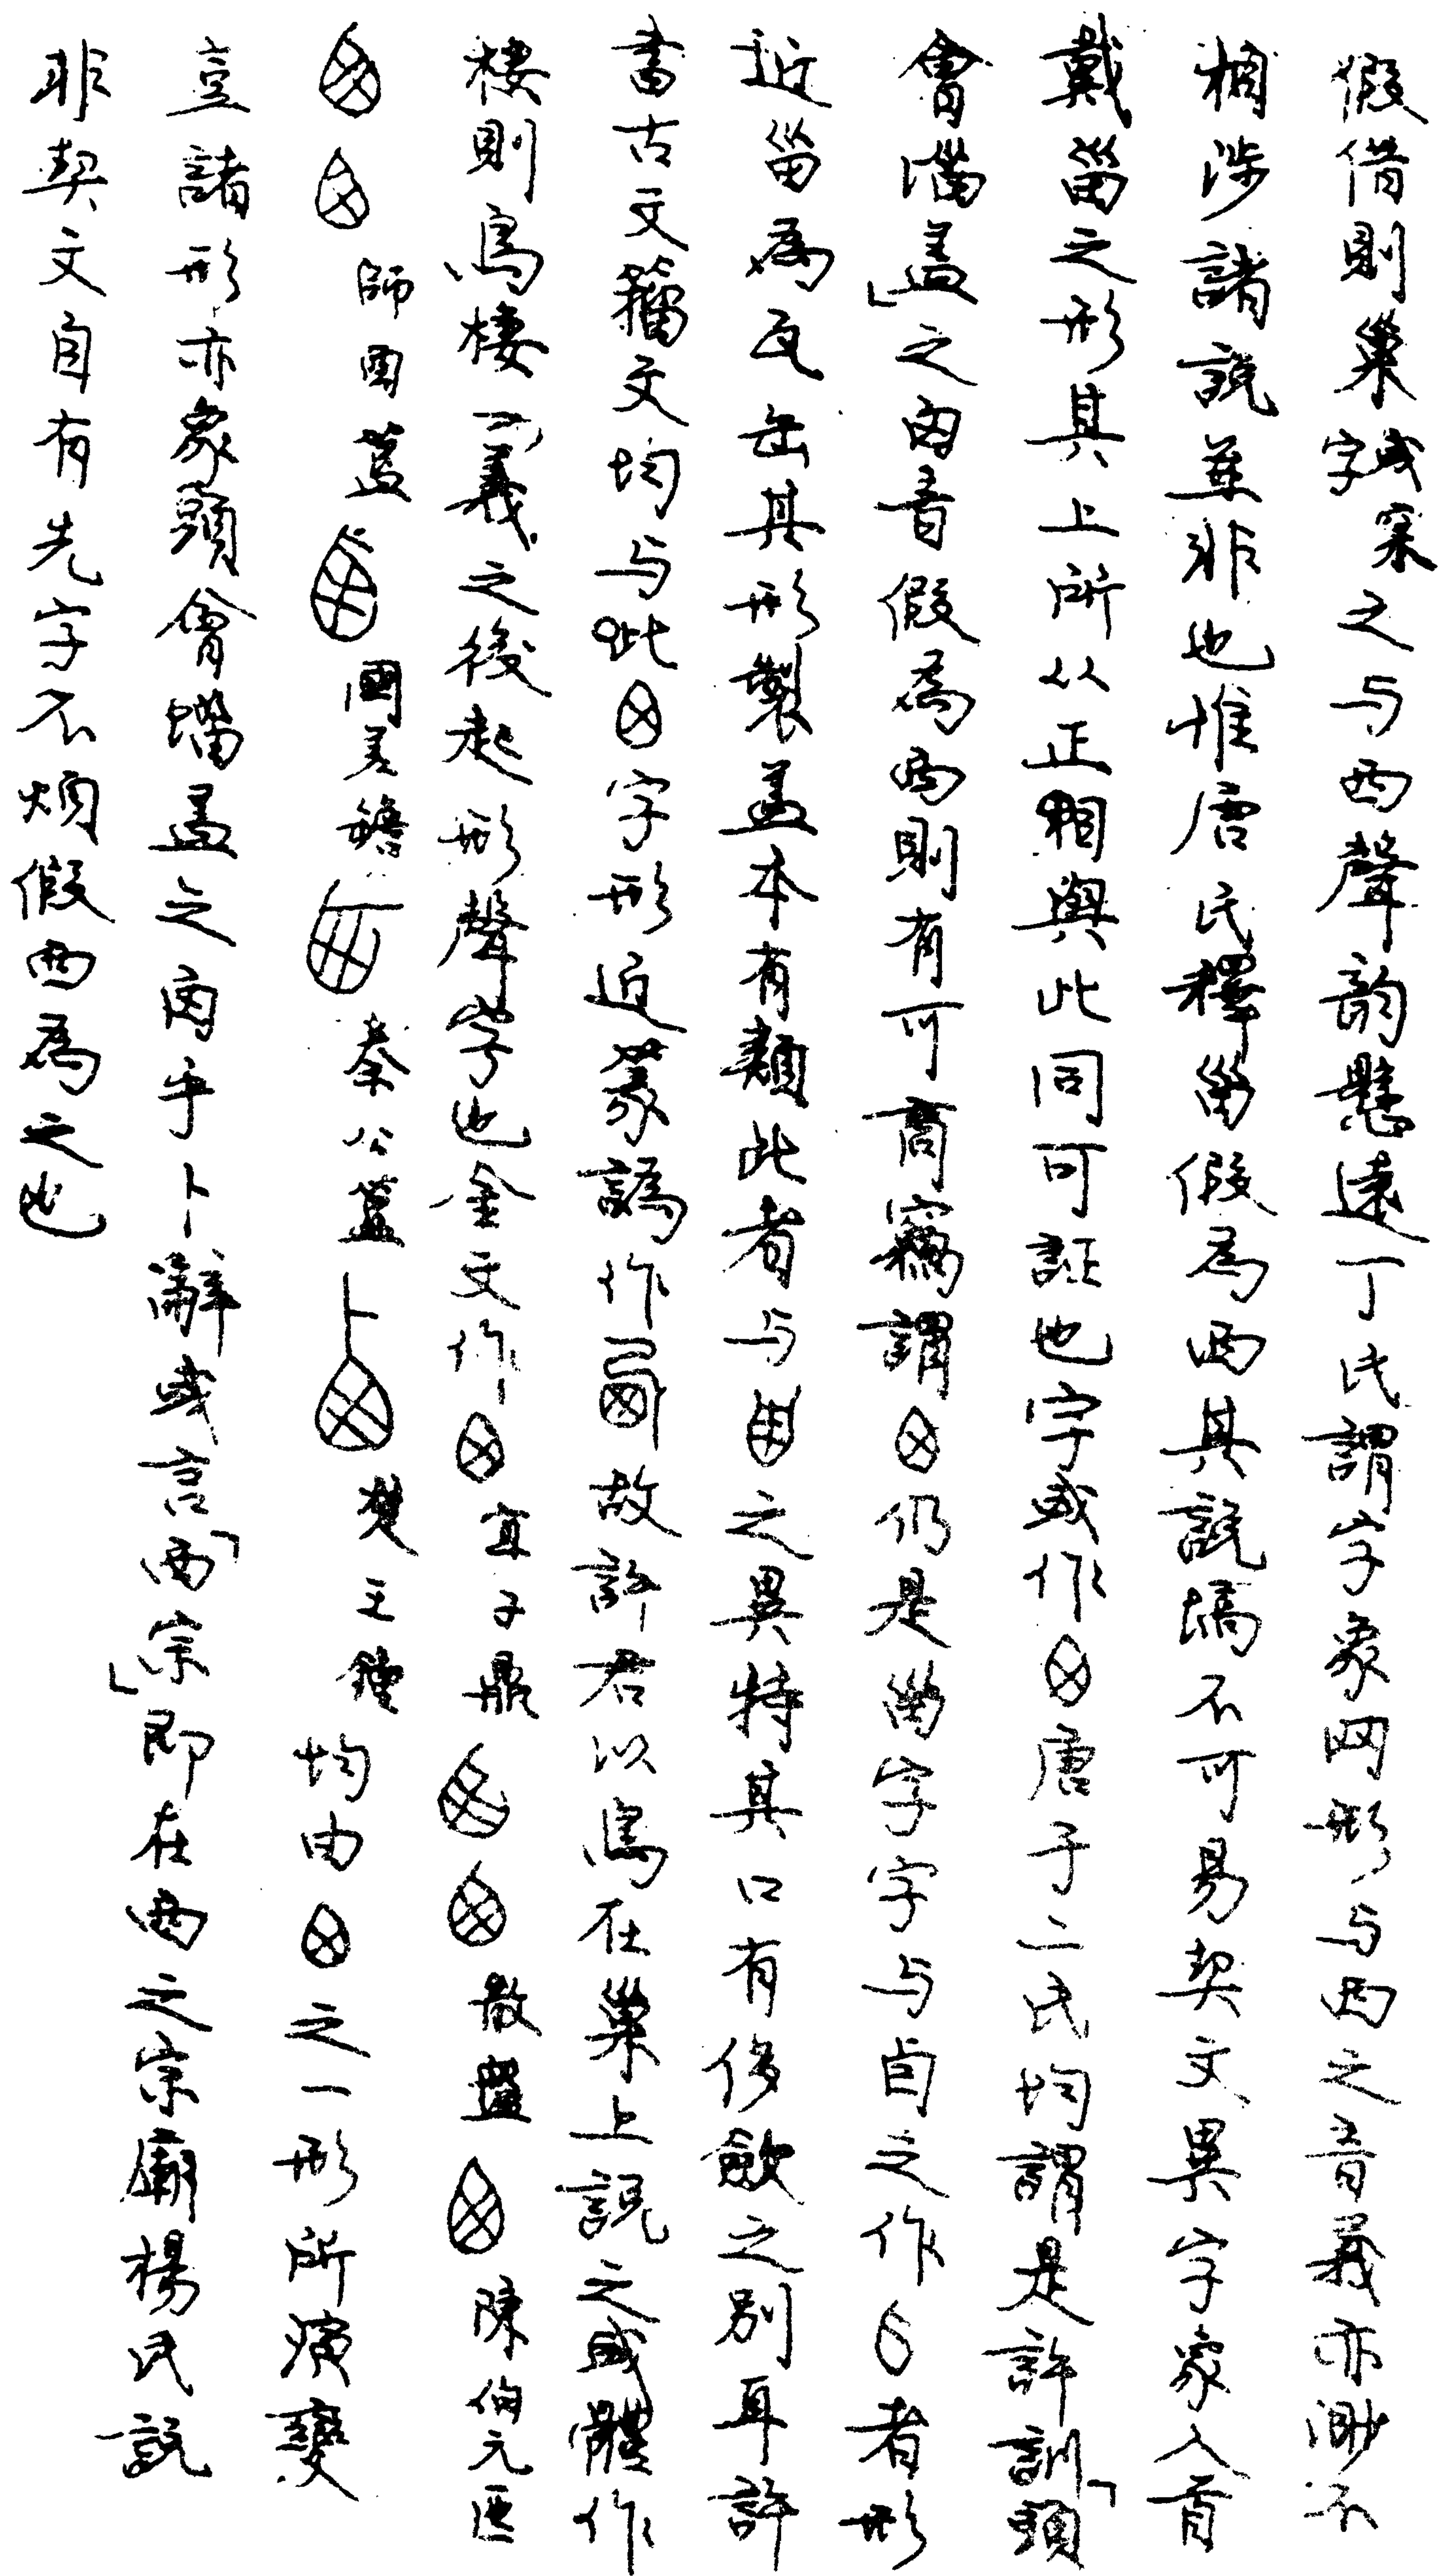 假借則巢字或窠之与西聲韵懸遠丁氏謂字象网形与西之音義亦渺不
相涉諸説並非也惟唐氏釋甾假為西其説塙不可易契文異字象人首
戴甾之形其上所从正相與此同可証也字或作唐于二氏均謂是許訓「頭
會𡿺蓋」之囟音假為西則有可商竊謂仍是甾字字与卣之作者形
近甾為瓦缶其形製蓋本有類此者与之異特其口有侈斂之別耳許
書古文籀文均与此字形近篆譌作故許君以鳥在巢上説之或體作
棲則鳥棲一義之後起形聲字也金文作㝬子鼎散盤陳伯元匜
師酉簋國差𦉜秦公簋楚王鐘均由之一形所演變
豈諸形亦象頭會𡿺蓋之囟乎卜辭或言「西宗」即在西之宗廟楊氏説
非契文自有先字不煩假西為之也